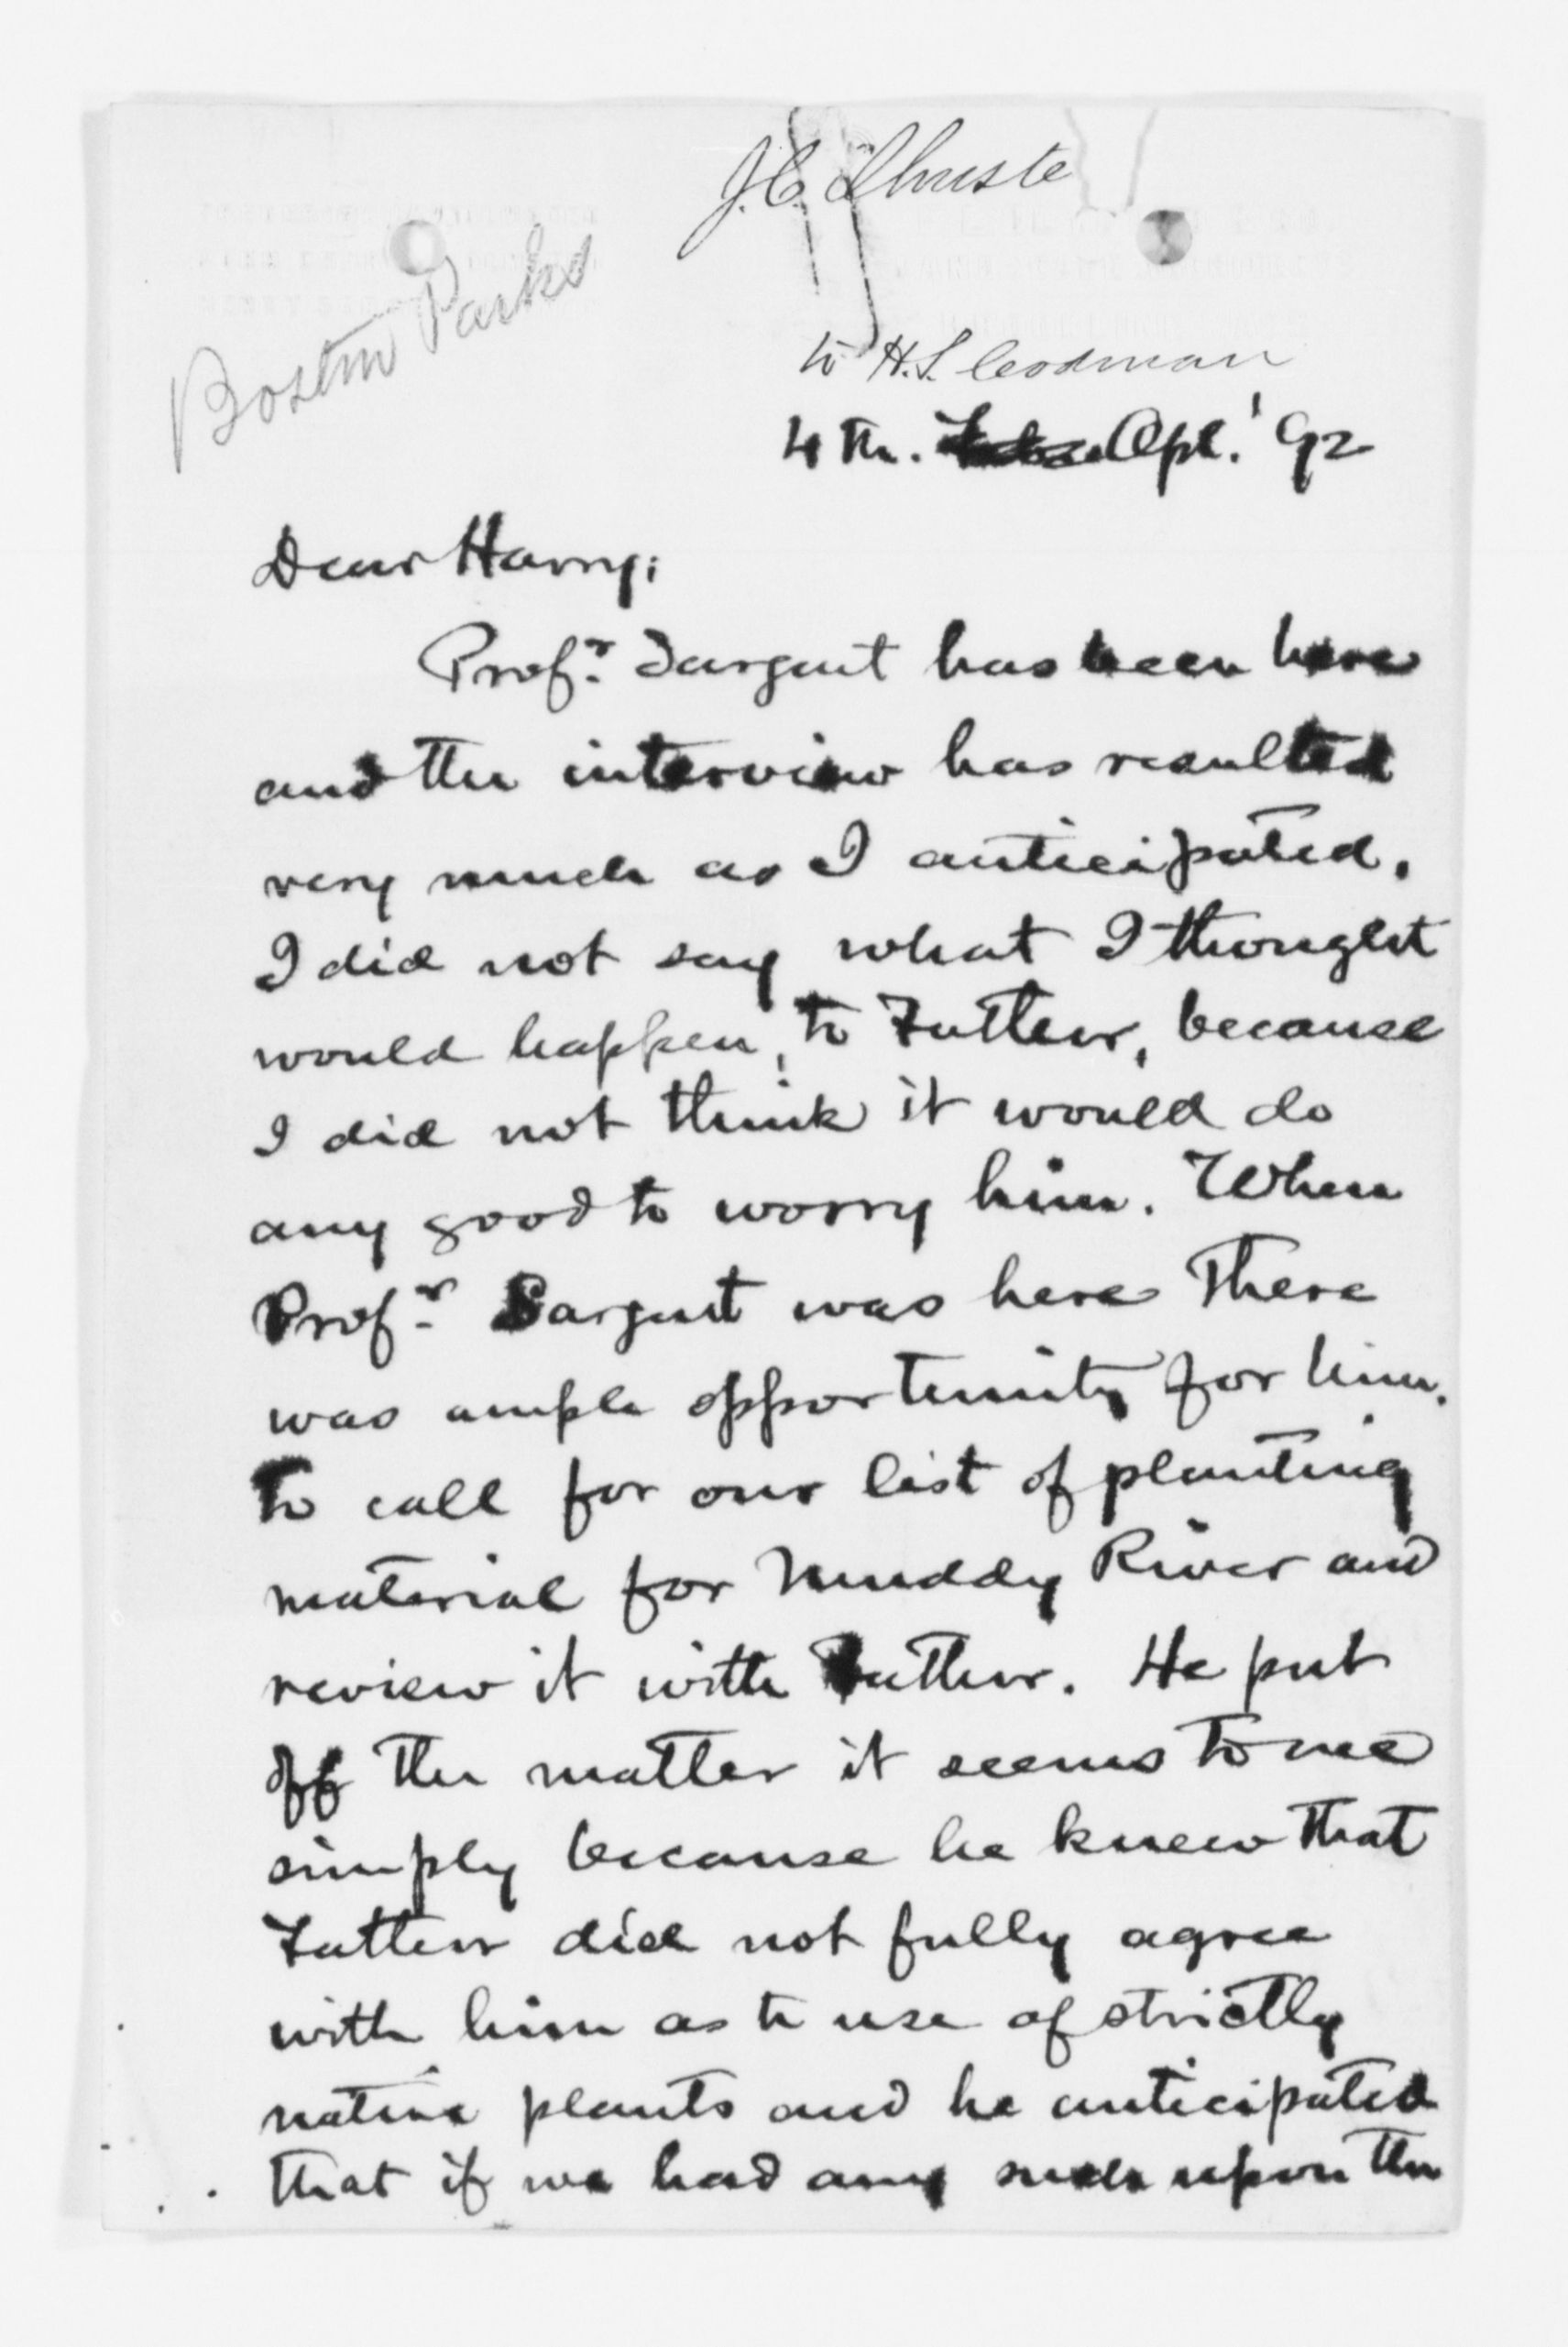 J.C. Olmsted
Boston Parks
to H.S. Codman
4th. Apl. '92
Dear Harry;
Profr. Sargent has been here
and the interview has resulted
very much as I anticipated.
I did not say what I thought
would happen, to Father, because
I did not think it would do
any good to worry him. When
Profr. Sargent was here there
was ample opportunity for him
to call for our list of planting
material for Muddy River and
review it with Father. He put
off the matter it seems to me
simply because he knew that
Father did not fully agree
with him as to use of strictly
native plants and he anticipated
that if we had any such upon the